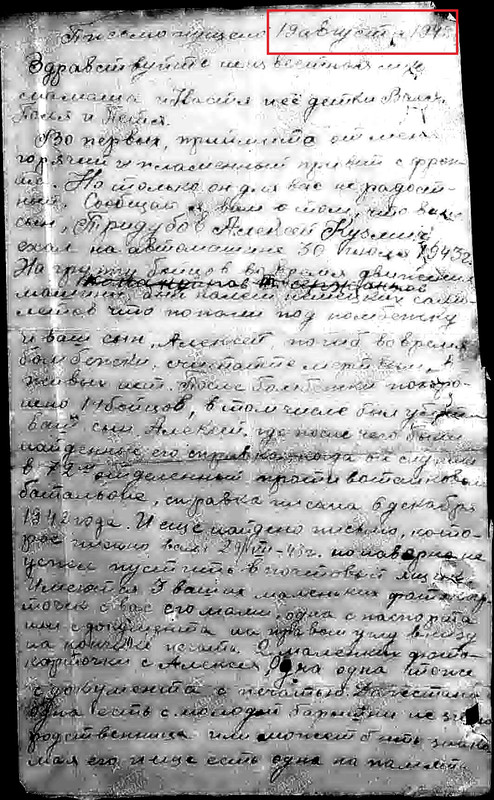 Письмо пущено 19 августа 194
Здравствуйте неизвестная мне
мамаша и Настя и её детки Валя,
Толя и Петя.
Во первых, примите от меня
горячий и пламенный привет с фрон-
та. Но только он для вас не радост-
ный. Сообщаю я вам о том, что ваш
сын, Тридубов Алексей Кузмич
ехал на автомашине 30 июля 1943г.
На группу бойцов во время движения
машины был налет немецких само-
летов что попали под бомбежку
и ваш сын, Алексей, погиб во время
бомбежки, считайте мертвым, в
живых нет. После бомбежки похоро-
нено 14 бойцов, в том числе был убит
ваш сын Алексей. где после чего были
найдены его справка когда он служил
в 72м отделенный противотанковом
батальоне, справка писана 6 декабря
1942 года. И еще найдено письмо, кото-
рое писано вам 29/VII-43г. но наверно не
успел пустить в почтовый ящик
Имеются 3 ваших маленьких фотокар-
точек с вас его мамы, одна с паспорта
или с документа на правом углу внизу
на кончике печать. 2 маленьких фото-
карточки с Алексея. Одна одна тоже
с документа с печатью.
одна есть с молодой барышни не
родственница или может быть знако-
мая его и еще есть одна на память